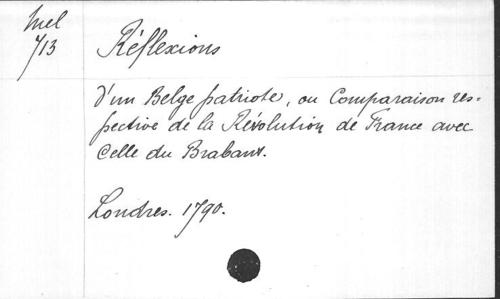 Mel
713
Réflexions
d'un Belge patriote, ou Comparaison res-
pective de la Révolution de France avec
Celle du Brabant.
Londres. 1790.